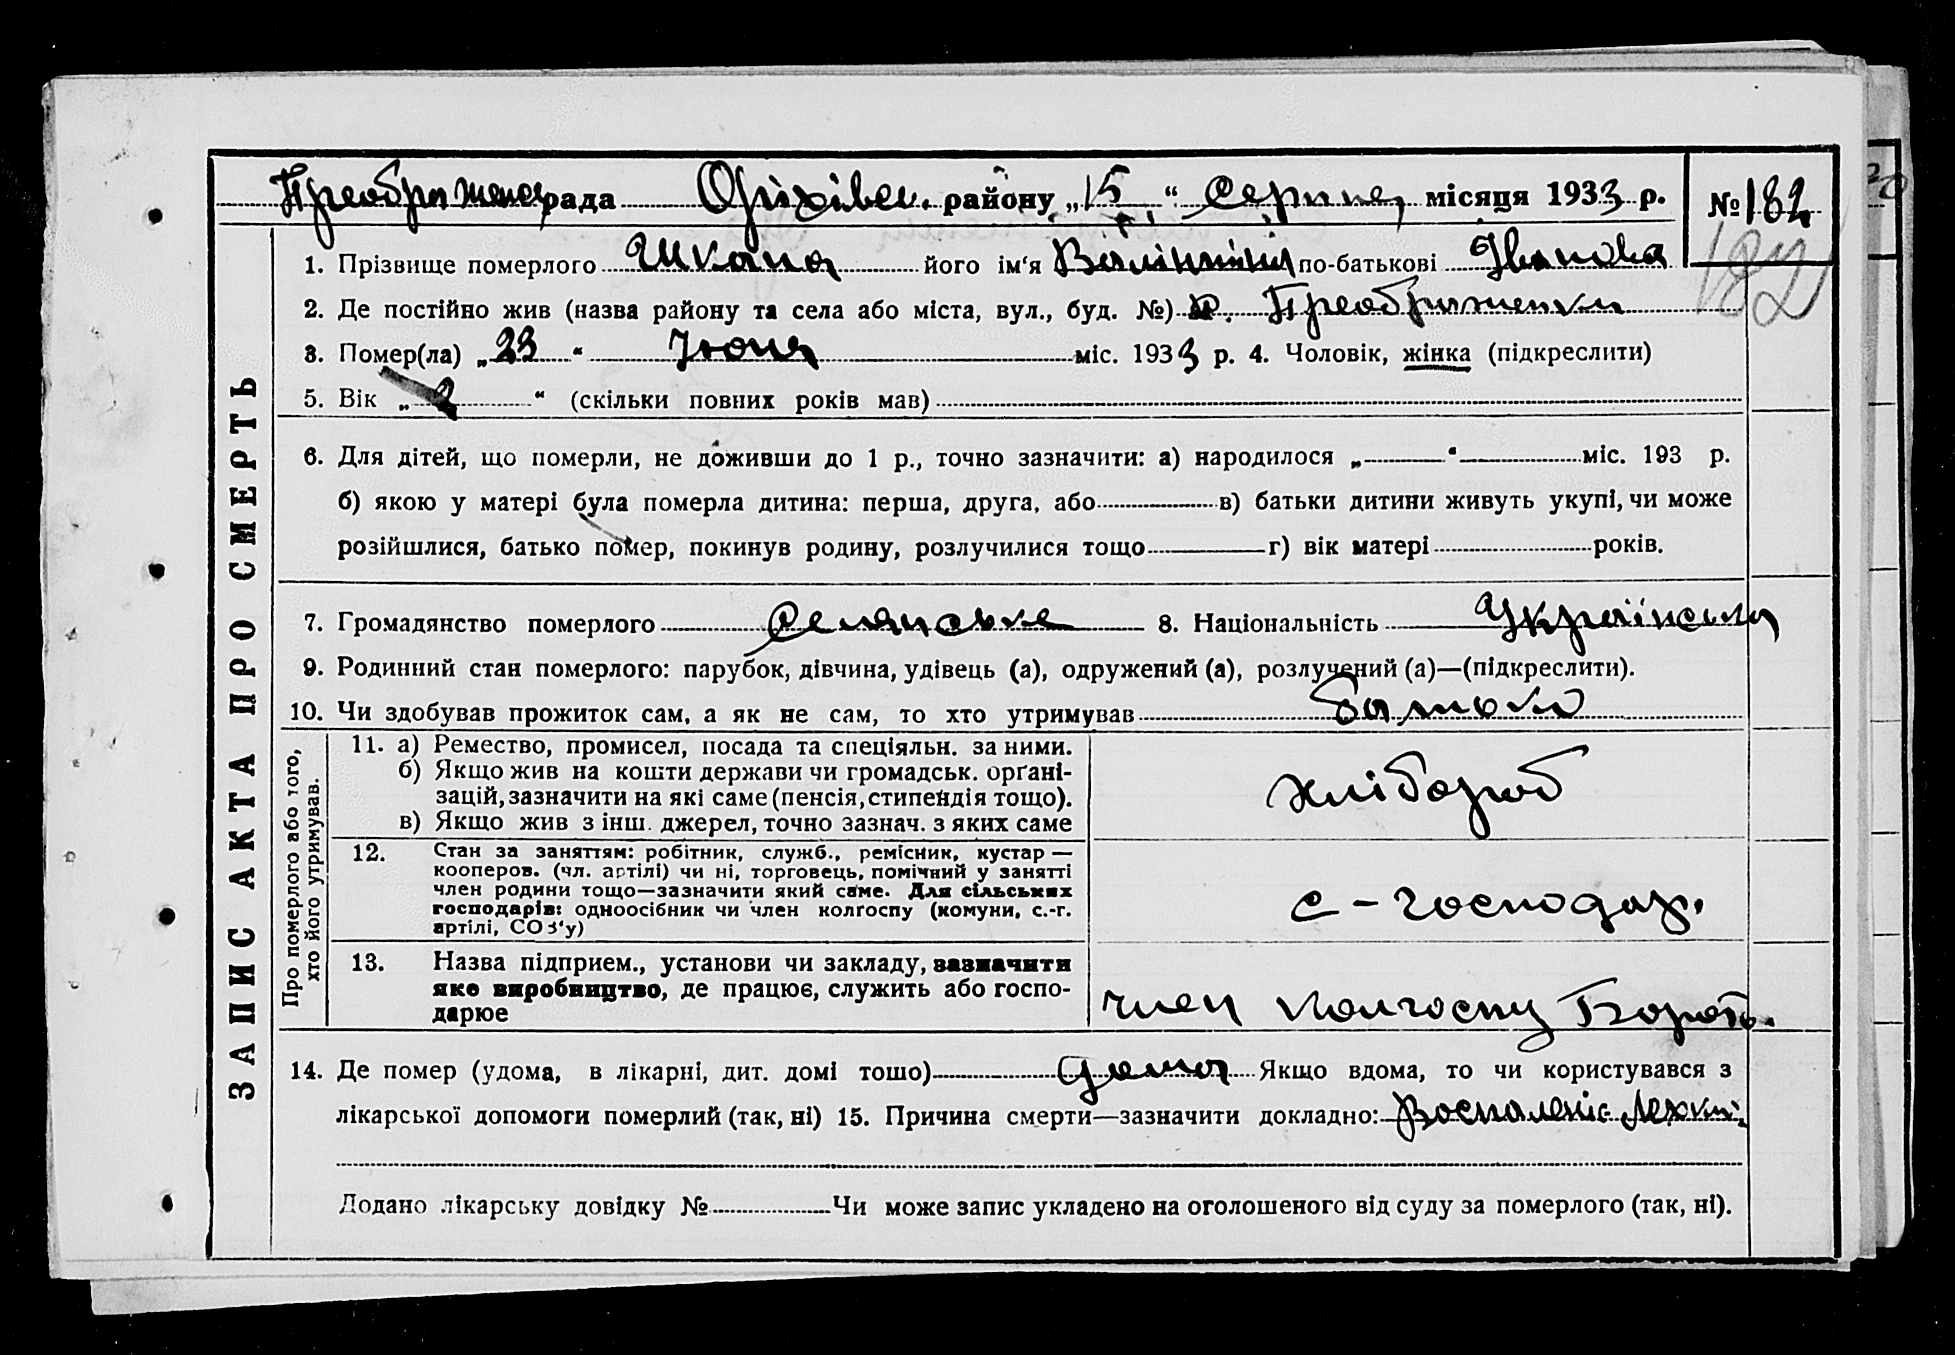 Преображенс рада Оріхівсь. району „15“ Серпня місяця 1933 р. № 182
182
1. Прізвище померлого Шкапа його ім‘я по-батькові Іванова
2. Де постійно жив (назва району та села або міста, вул., буд. №) Преображенки
3. Помер(ла) „23“ Июня міс. 1933 р. 4. Чоловік, жінка (підкреслити)
5. Вік „2“ (скільки повних років мав)
6. Для дітей, що померли, не доживши до 1 р., точно зазначити: а) народилося „ “ міс. 193 р.
б) якою у матері була померла дитина: перша, друга, або в) батьки дитини живуть укупі, чи може
розійшлися, батько помер, покинув родину, розлучилися тощо г) вік матері років.
7. Громадянство померлого Селянське 8. Національність Українська
9. Родинний стан померлого: парубок, дівчина, удівець (а), одружений (а), розлучений (а)—(підкреслити).
10. Чи здобував прожиток сам, а як не сам, то хто утримував батько
ЗАПИС АКТА ПРО СМЕРТЬ
Про померлого або того,
хто його утримував.
11. а) Ремество, промисел, посада та спеціяльн. за ними.
б) Якщо жив на кошти держави чи громадськ. орґані-
зацій, зазначити на які саме (пенсія, стипендія тощо).
в) Якщо жив з інш. джерел, точно зазнач. з яких саме
хлібороб
12. Стан за заняттям: робітник, служб., ремісник, кустар —
кооперов. (чл. артілі) чи ні, торговець, помічний у занятті
член родини тощо—зазначити який саме. Для сільських
господарів: одноосібник чи член колгоспу (комуни, с.-г.
артілі, СОЗ‘у)
с-господар.
13. Назва підприєм., установи чи закладу, зазначити
яке виробництво, де працює, служить або госпо-
дарює
член колгоспу Бороть.
14. Де помер (удома, в лікарні, дит. домі тошо) дома Якщо вдома, то чи користувався з
лікарської допомоги померлий (так, ні) 15. Причина смерти—зазначити докладно: Воспаленіє Легких
Додано лікарську довідку № Чи може запис укладено на оголошеного від суду за померлого (так, ні).